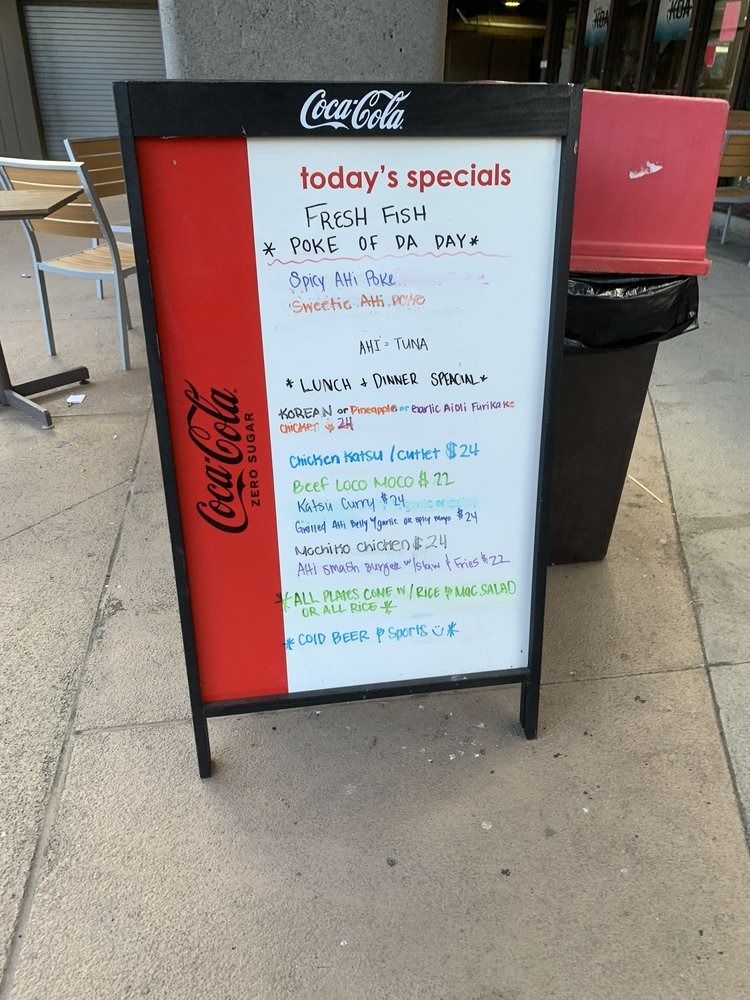 Coca-Cola
today's specials
FRESH FISH
* POKE OF DA DAY *
Spicy AHi Poke
Sweetie AHi POKE
AHI = TUNA
* LUNCH & DINNER SPEACIAL *
KOREAN or Pineapple or Garlic Aioli Furikake
CHICKEN $ 24
Chicken Katsu / Cutlet $ 24
Beef LOCO MOCO $ 22
Katsu Curry $ 24
Grilled AHi Belly garlic or spicy mayo $24
Mochiko chicken $ 24
AHi Smash Burger w/slaw & Fries $ 22
* ALL PLATES COME W / RICE & MAC SALAD
OR ALL RICE *
* COLD BEER & Sports *
Coca-Cola
ZERO SUGAR